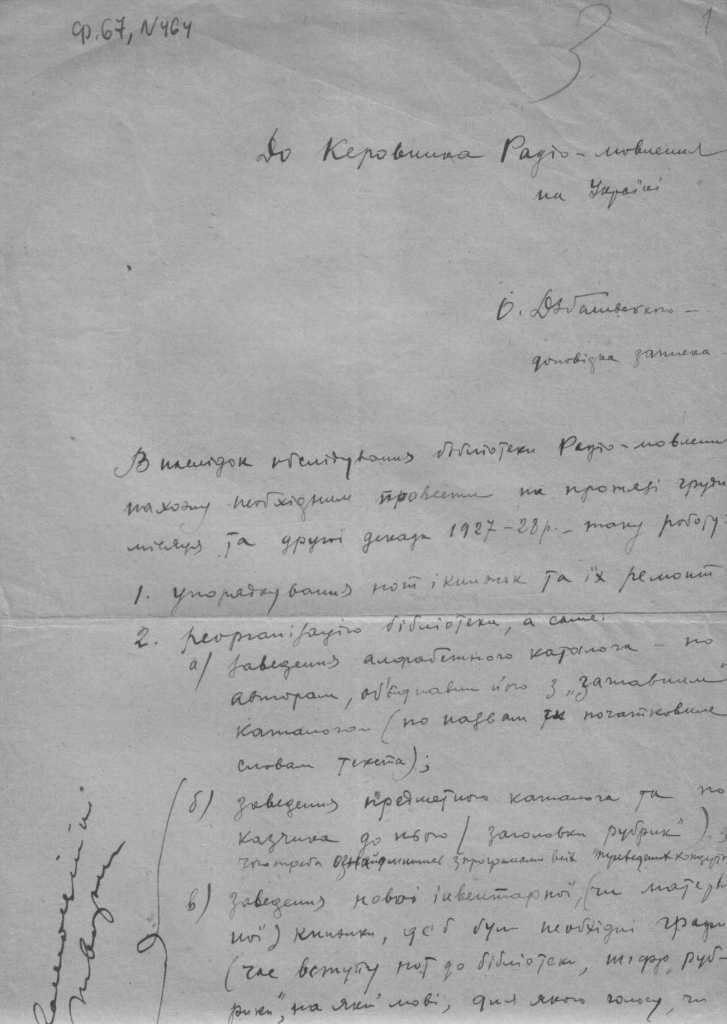 Ф. 67, N 464
3
1
До Керовника Радіо-мовлення
на Україні
О.
доповідна записка
В наслідок обслідування бібліотеки Радіо-мовлення
нахожу необхідним провести на протязі грудня
місяця та другої декади 1927-28 р. - таку роботу:
1. упорядкування нот і книжок та їх ремонт
2. реорганізацію бібліотеки, а саме:
а) заведення алфабетного каталога - по
авторам, об'єднавши його з „заглавним"
каталогом (по назвам чи початковим
словам текста);
б) заведення предметного каталога та по
казчика до нього („заголовки рубрик")
для чого треба ознайомитися з програмами всіх
в) заведення нової інвентарної, (чи матеріаль
ної) книжки, де б були необхідні графи
(час вступу нот до бібліотеки, шифр, „руб-
рики", на якій мові, для якого голосу, чи